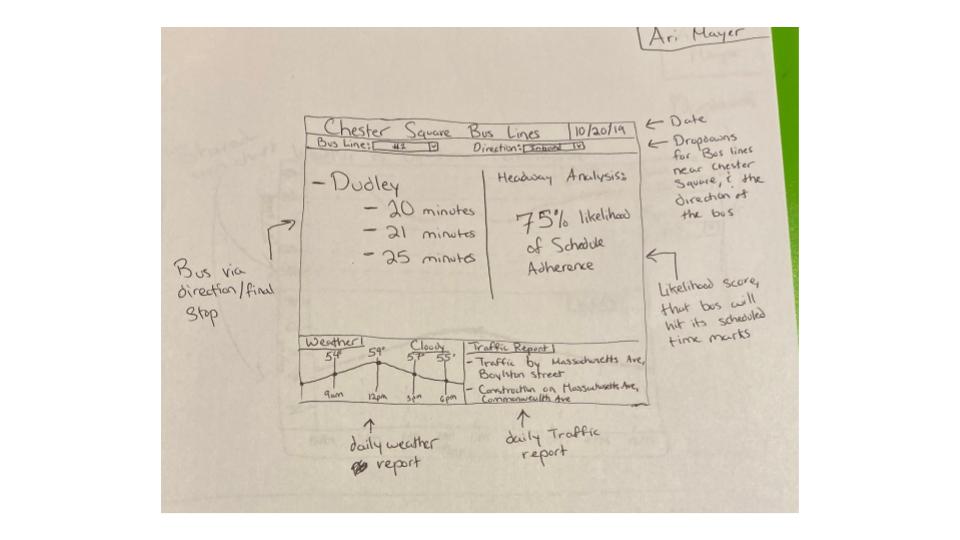 Ari Mayer
Chester Square Bus Lines 10/20/19
Bus Line: #1 Direction: Inbound
- Dudley
- 20 minutes
- 21 minutes
- 25 minutes
Headway Analysis:
75% likelihood
of Schedule
Adherence
Weather Cloudy
54° 59° 57° 55°
9am 12pm 3pm 6pm
Traffic Report
- Traffic by Massachusetts Ave,
Boylston street
- Construction on Massachusetts Ave,
Commonwealth Ave
Bus via
direction/final
Stop
Date
Dropdowns
for Bus lines
near Chester
Square, & the
direction of
the bus
Likelihood score,
that bus will
hit its scheduled
time marks
daily weather
report
daily Traffic
report